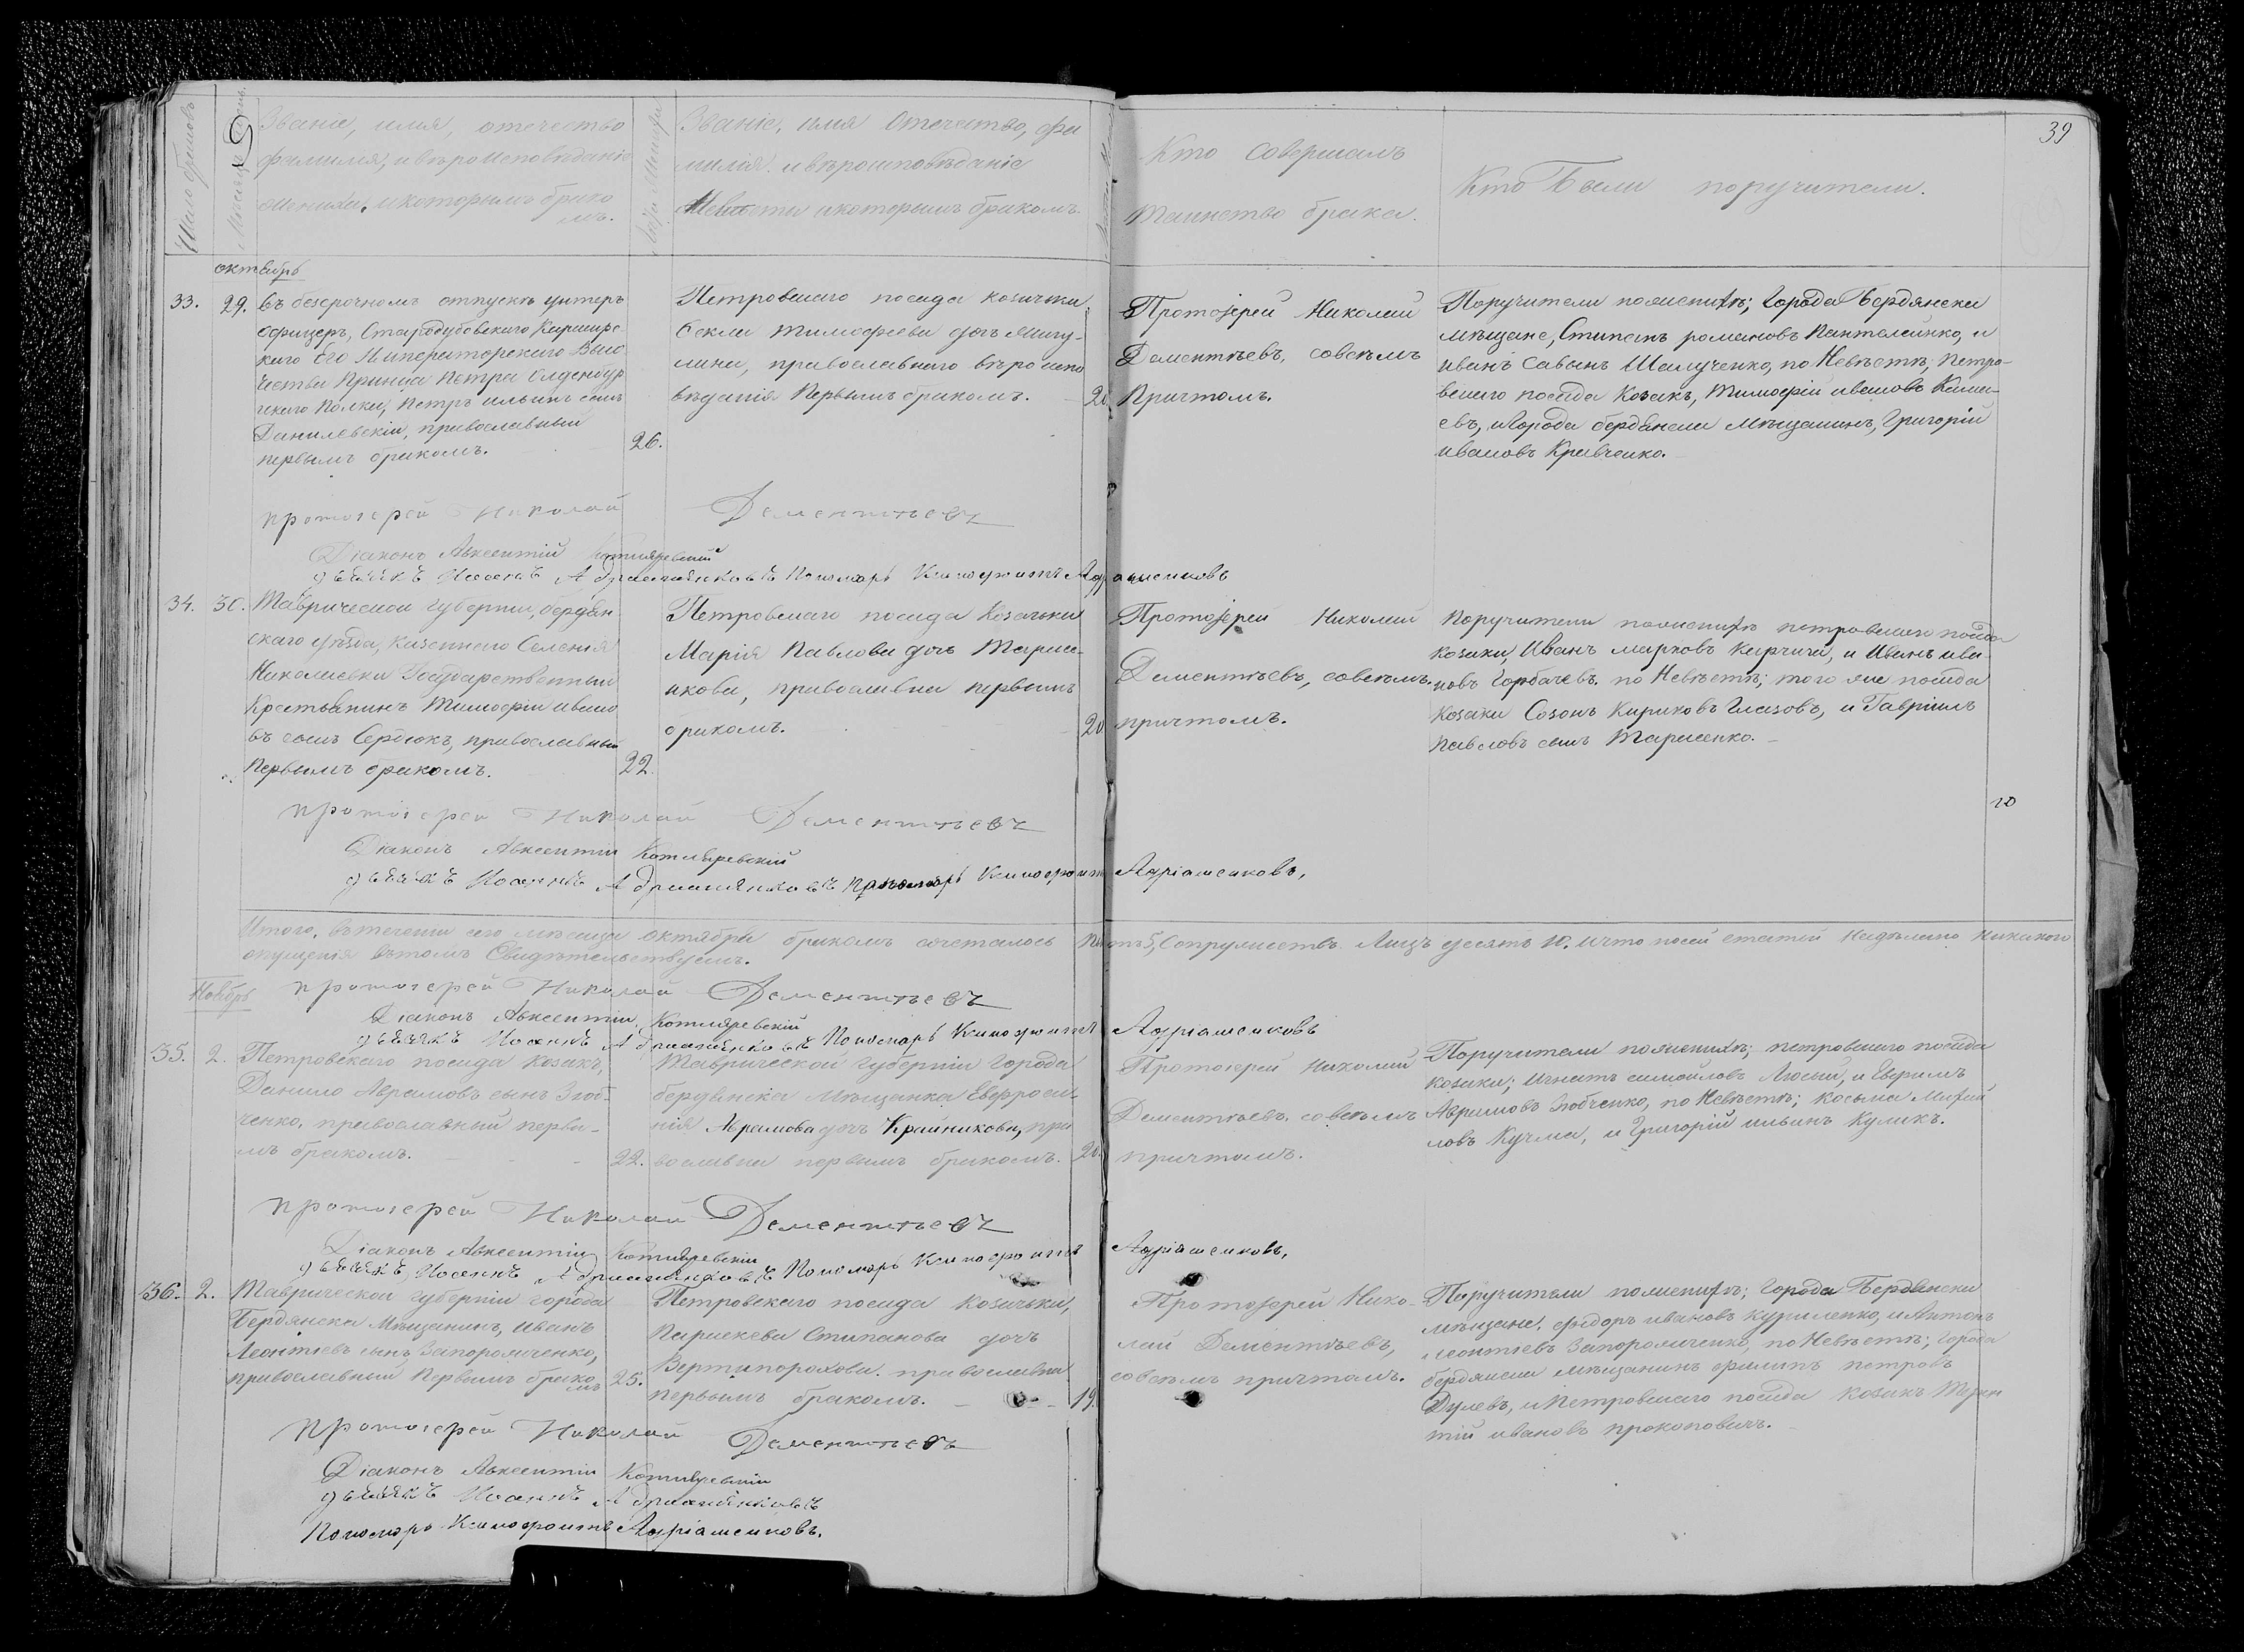 39
Число браковъ
Званіе, имя, отечество
фамилія, и вѣроисповѣданіе
жениха, и которымъ брако
мъ.
Лѣта Жениха
Званіе, имя Отечество, фа
милія. и вѣроисповѣданіе
Невѣсты и которымъ бракомъ.
Кто совершалъ
таинство брака.
Кто Были поручители.
октябрь
33. 29. Въ безсрочномъ отпускѣ унтеръ
офицеръ, Стародубовскаго Кирасирс
каго Его Императорскаго Высо
чества Принца Петра Олденбур
гскаго Полка, Петръ ильинъ сынъ
Данилевскій, православный
первымъ бракомъ. 26.
Петровскаго посада козачка
Фекла тимофеева дочь
лина, православнаго вѣроиспо
вѣданія Первымъ бракомъ. 20.
Протоіерей Николай
Дементьевъ, совсѣмъ
Причтомъ.
Поручители поженихѣ; Города Бердянска
мѣщане, Стипанъ романовъ Пантелеинко, и
иванъ Савынъ Шамученко, по Невѣстѣ, Петро-
вскаго посада Козакъ, Тимофій ивановъ
евъ, и Города бердянска Мѣщанинъ, Григорій
ивановъ Кравченко.
протоіерей Николай Дементьевъ
Діаконъ Авксентій Котляревскій
дьячекъ Иоаннъ Адріашенковъ Пономарь Ксинофонтъ Адріашенковъ
34. 30. Таврической губерніи, бердян
скаго уѣзда, казеннаго Селенія
Николаевки Государственный
Крестьянинъ Тимофій ивано
въ сынъ Сердюкъ, православный
Первымъ бракомъ. 22.
Петровскаго посада Козачька
Марія Павлова дочь Тарасе-
нкова, православна первымъ
бракомъ. 20.
Протоіерей Николай
Дементьевъ, совсѣмъ
причтомъ.
Поручители поженихѣ петровскаго посада
козаки, Иванъ марковъ Кирчига, и Иванъ ива-
новъ Горбачевъ. по Невѣстѣ; того же посада
Козаки Созонъ Кириковъ Глазовъ, и Гавріилъ
Павловъ сынъ Тарасенко.
10
протоіерей Николай Дементьевъ
Діаконъ Авксентій Котляревскій
дьячекъ Иоаннъ Адріашенковъ Пономарь Ксинофонтъ Адріашенковъ,
Итого, въ теченіи сего мѣсяца октября бракомъ сочеталось пять 5, Супружествъ. Лицъ десять 10. И что посей статьи Надѣлано никакого
опущенія вътомъ Свидѣтельствуемъ.
протоіерей Николай Дементьевъ
Діаконъ Авксентій Котляревскій
дьячекъ Иоаннъ Адріашенковъ Пономарь Ксинофонтъ Адріашенковъ
Ноябрь
35. 2. Петровскаго посада Козакъ,
Данило Аврамовъ сынъ Злоб-
ченко, православный первы-
мъ бракомъ. 22.
Таврической Губерніи Города
бердянска Мѣщанка Евфроси-
нія Аврамова дочь Крайникова, пра
вославна первымъ бракомъ. 20.
Протоіерей Николай
Дементьевъ совсѣмъ
причтомъ.
Поручители поженихѣ; петровскаго посада
козаки; Игнатъ самойловъ Люсый, и Ефимъ
Аврамовъ Злобченко, по Невѣстѣ; Косьма
ловъ Кучма, и Григорій ильинъ Куликъ.
протоіерей Николай Дементьевъ
Діаконъ Авксентій Котляревскій
дьячекъ Иоаннъ Адріашенковъ Пономарь Ксинофонтъ Адріашенковъ,
36. 2. Таврической губерніи города
Бердянска Мѣщанинъ, Иванъ
Леонтіевъ сынъ Запорожченко,
православный Первымъ брако
мъ 25.
Петровскаго посада козачька,
Параскева Стипанова дочъ
Вертипорохова. православна
первымъ бракомъ. 19.
Протоіерей Нико-
лай Дементьевъ,
совсѣмъ причтомъ.
Поручители поженихѣ; Города Бердянска
мѣщане, Фѣдоръ ивановъ Куриленко, и Антонъ
Леонтіевъ Запорожченко, по Невѣстѣ; города
бердянска мѣщанинъ филипъ петровъ
Дулевъ, и Петровскаго посада козакъ Терен
тій ивановъ прокоповичъ.
протоіерей Николай Дементьевъ
Діаконъ Авксентій Котляревскій
дьячекъ Иоаннъ Адріашенковъ
Пономарь Ксинофонтъ Адріашенковъ.